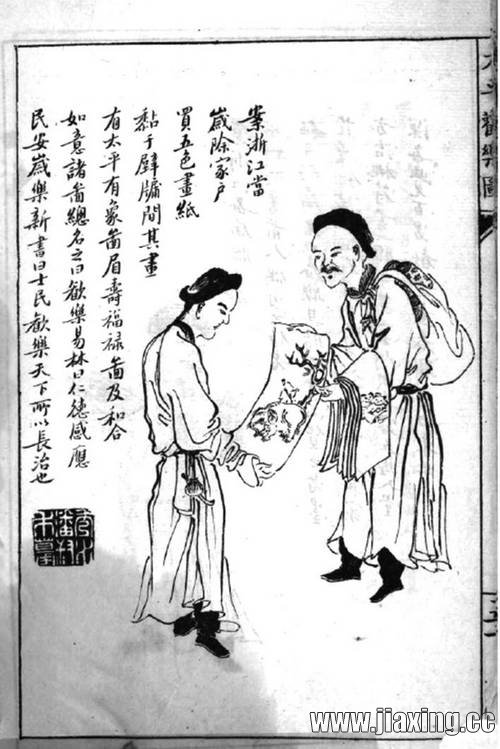 太平歡樂圖
案浙江當
歲除家戶
買五色畫紙
黏于壁牖間其畫
有太平有象啚眉壽福禄啚及和合
如意諸啚總名之曰歡樂易林曰仁德感應
民安歲樂新書曰士民歡樂天下所以長治也
www.jiaxing.cc